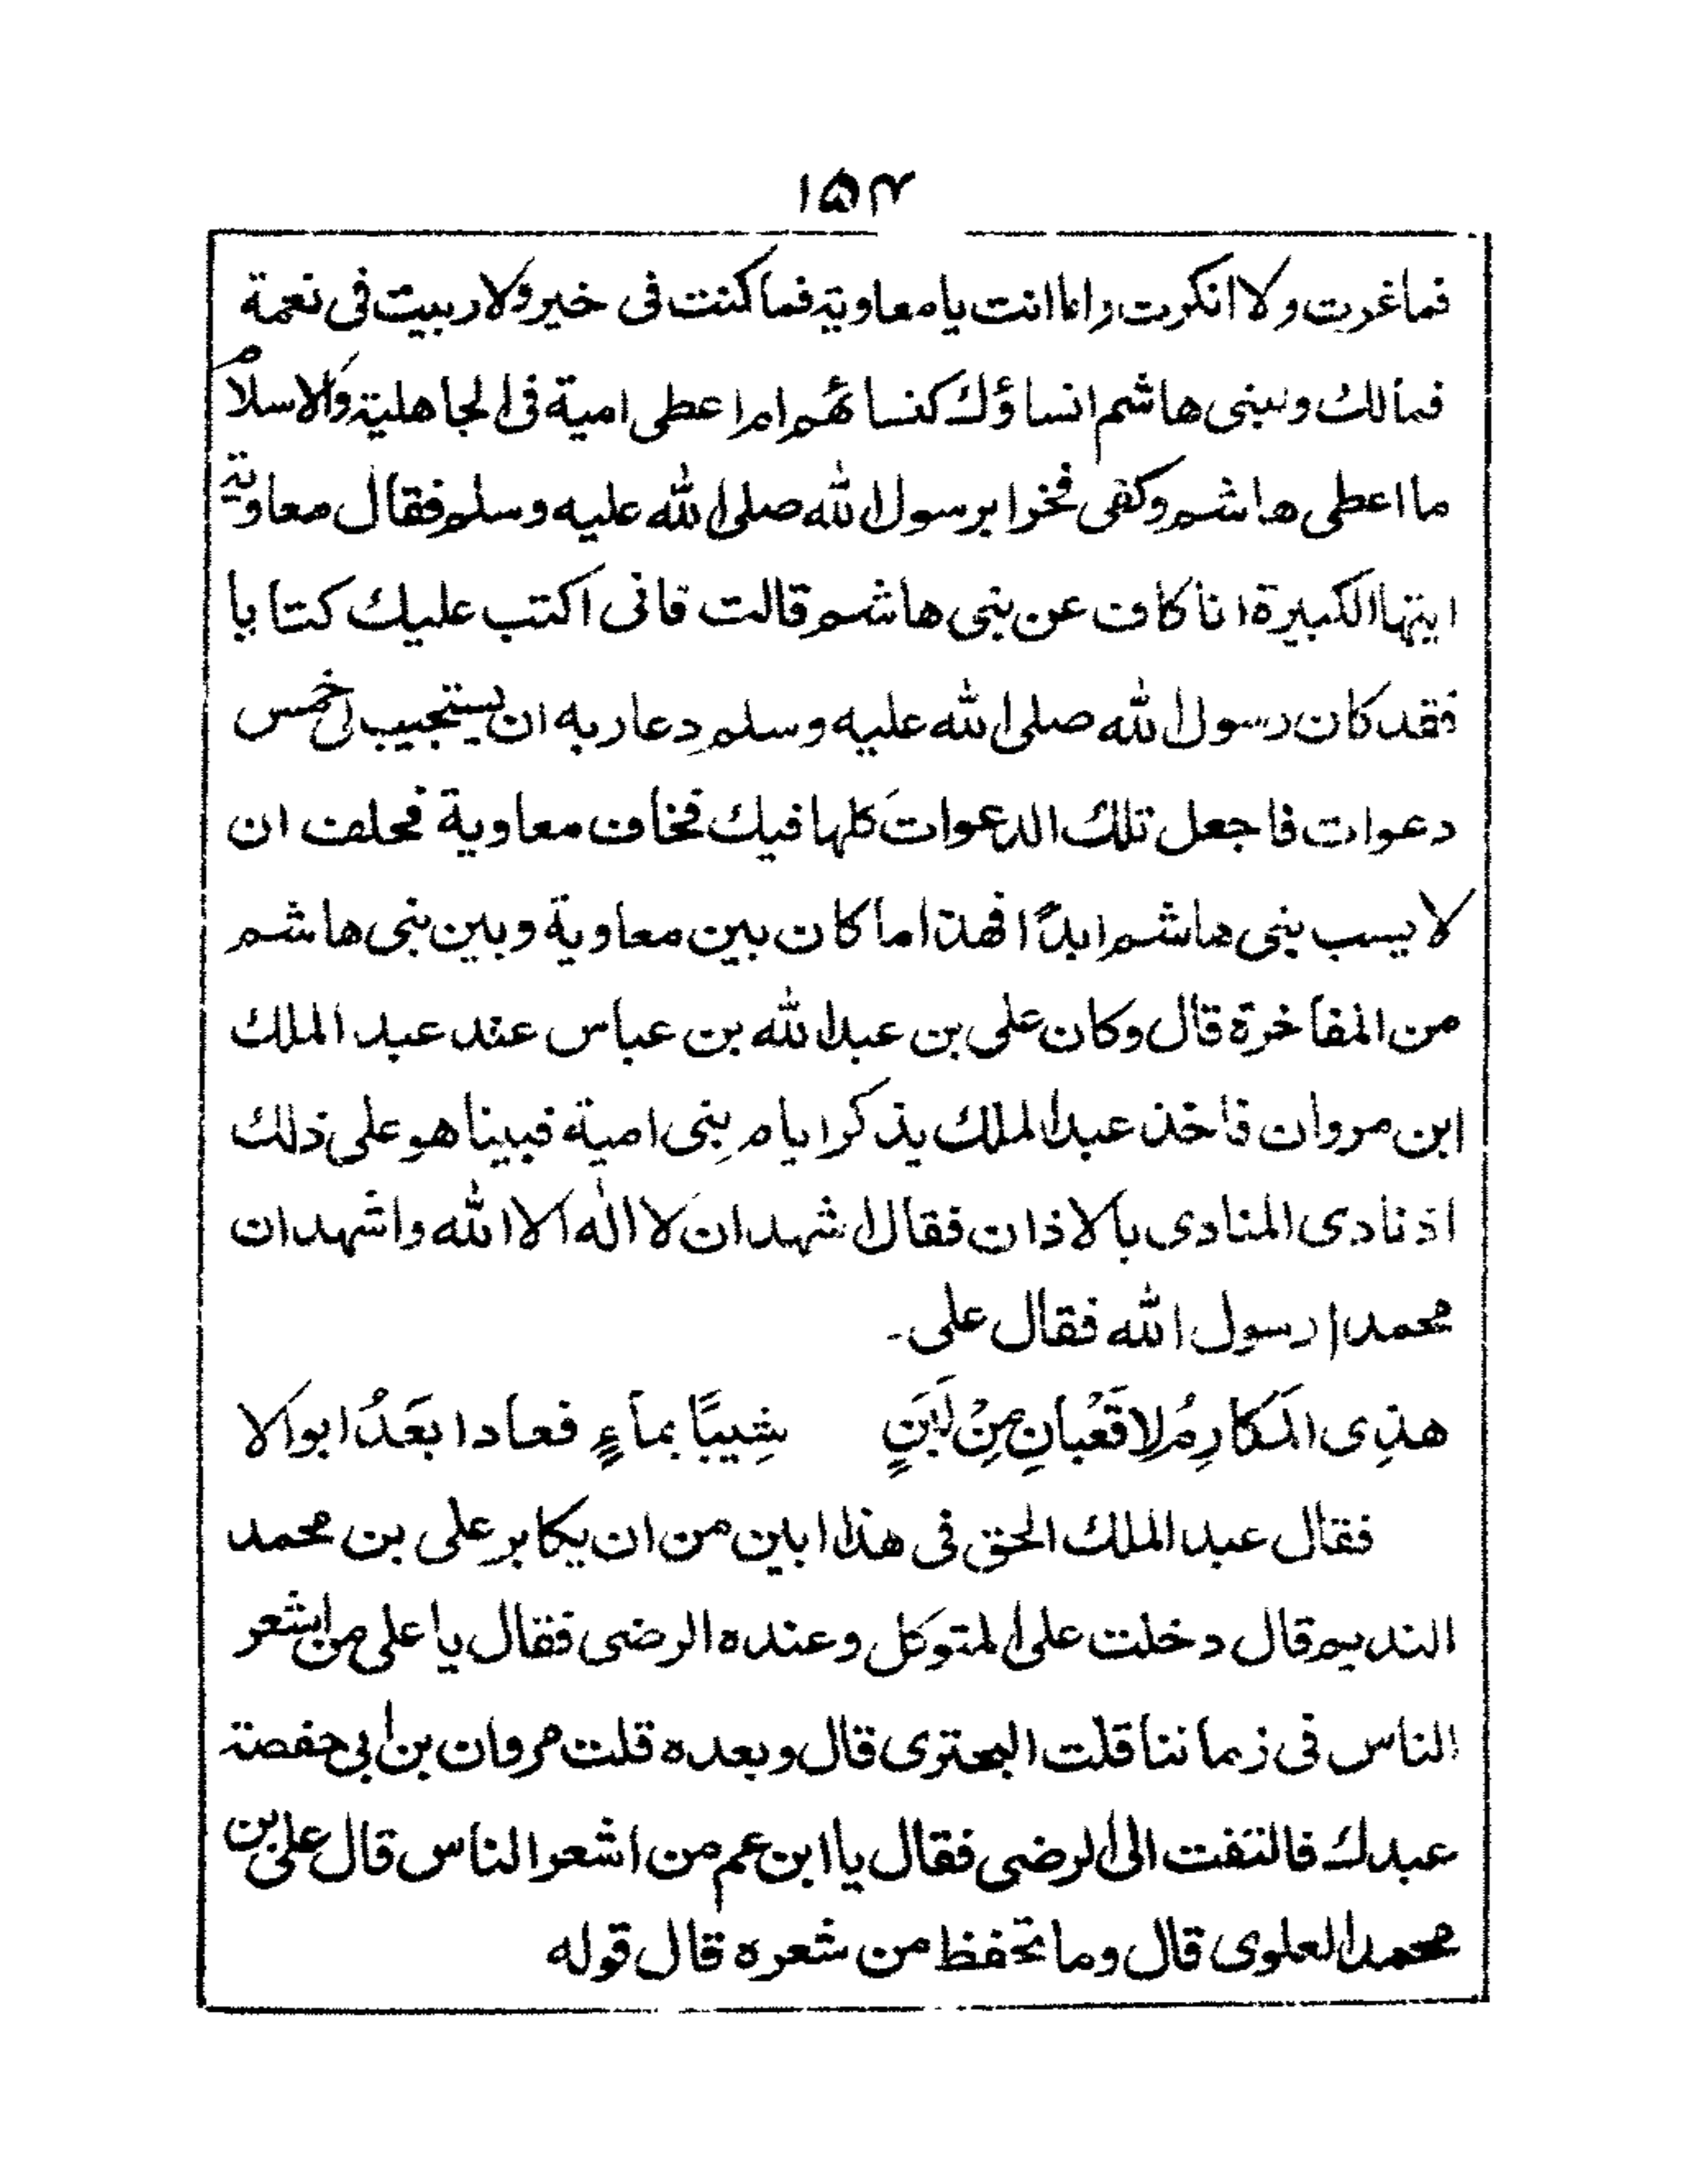 ١٥٣
فماغرت ولا انكرت واما انت يا معاوية فما كنت فى خير ولا ربيت فى نعمة
فمالك ولبنى هاشم انساؤك كنسائهم ام اعطى امية فى الجاهلية والاسلام
ما اعطى هاشم وكفى فخرا برسول الله صلى الله عليه وسلم فقال معاوية
ايتها الكبيرة انا كاف عن بنى هاشم قالت فانى اكتب عليك كتابا
فقد كان رسول الله صلى الله عليه وسلم دعا ربه ان يستجيب لى خمس
دعوات فاجعل تلك الدعوات كلها فيك فخاف معاوية فحلف ان
لا يسب بنى هاشم ابدًا فهذا ما كان بين معاوية وبين بنى هاشم
من المفاخرة قال وكان على بن عبد الله بن عباس عند عبد الملك
ابن مروان فاخذ عبد الملك يذكر ايام بنى امية فبينا هو على ذلك
اذ نادى المنادى بالاذان فقال اشهد ان لا اله الا الله واشهد ان
محمدا رسول الله فقال على۔
هذِى المَكارِمُ لا قَعْبانِ مِنْ لَبَنٍ شِيبًا بماءٍ فعادا بَعَدُ ابوالا
فقال عبد الملك الحق فى هذا ابين من ان يكابر على بن محمد
النديم قال دخلت على المتوكل وعنده الرضى فقال يا على من اشعر
الناس فى زماننا قلت البحترى قال وبعده قلت مروان بن ابى حفصة
عبدك فالتفت الى الرضى فقال يا ابن عم من اشعر الناس قال على بن
محمد العلوى قال وما تحفظ من شعره قال قوله